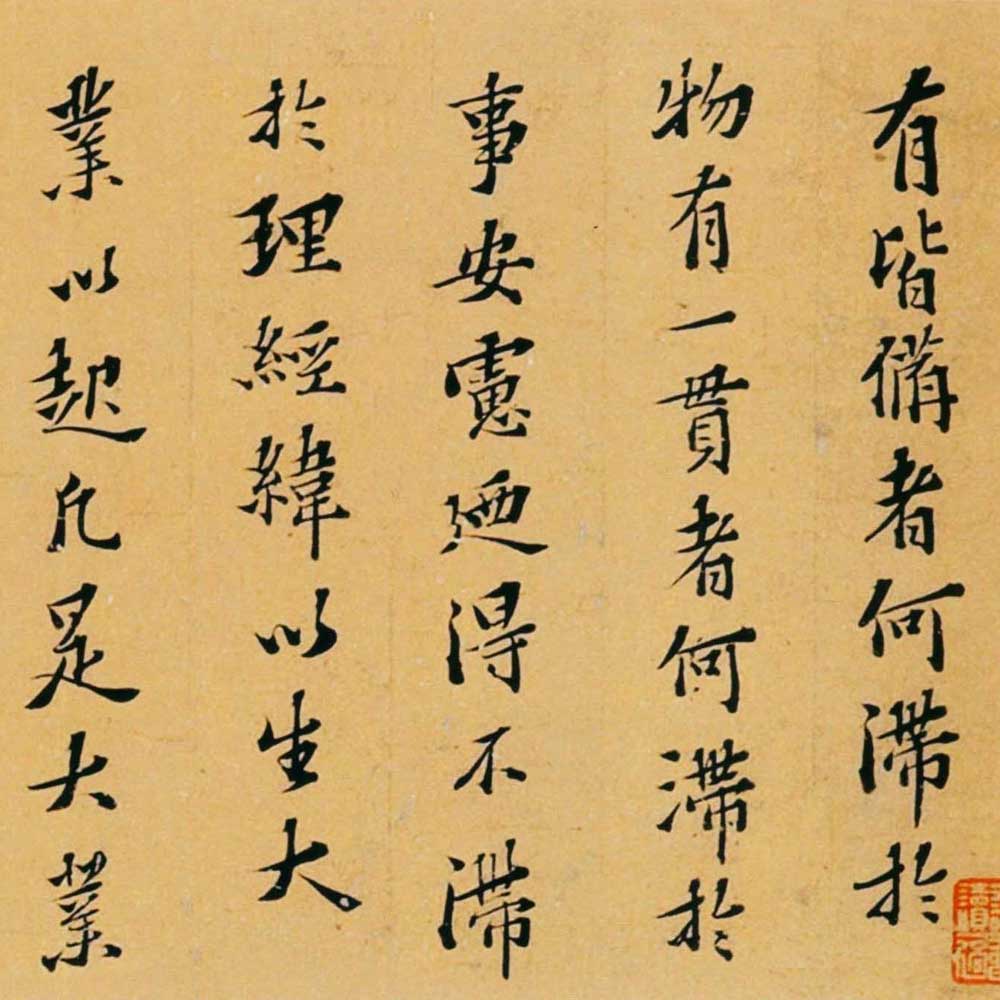 有皆備者何滯於
物有一貫者何滯於
事安慮迺得不滯
於理經緯以生大
業以起凡是大業